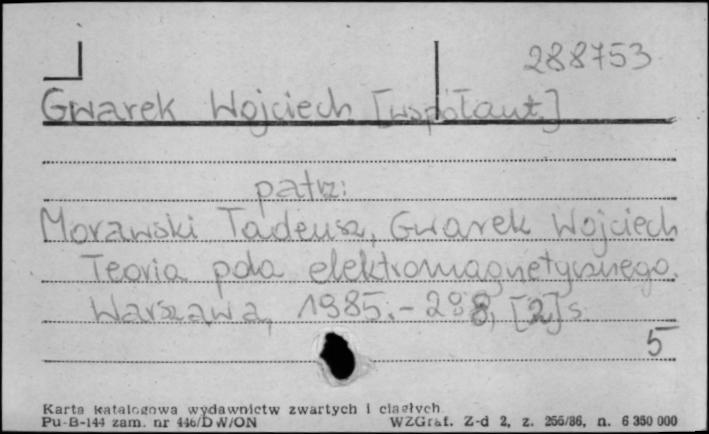 288753
Gwarek Wojciech [współaut.]
patrz:
Morawski Tadeusz, Gwarek Wojciech
Teoria pola elektromagnetycznego.
Warszawa, 1985. - 288, [2] s.
5
Karta katalogowa wydawnictw zwartych i ciągłych
Pu-B-144 zam. nr 446/DW/ON WZGraf. Z-d 2, z. 256/86, n. 6 350 000